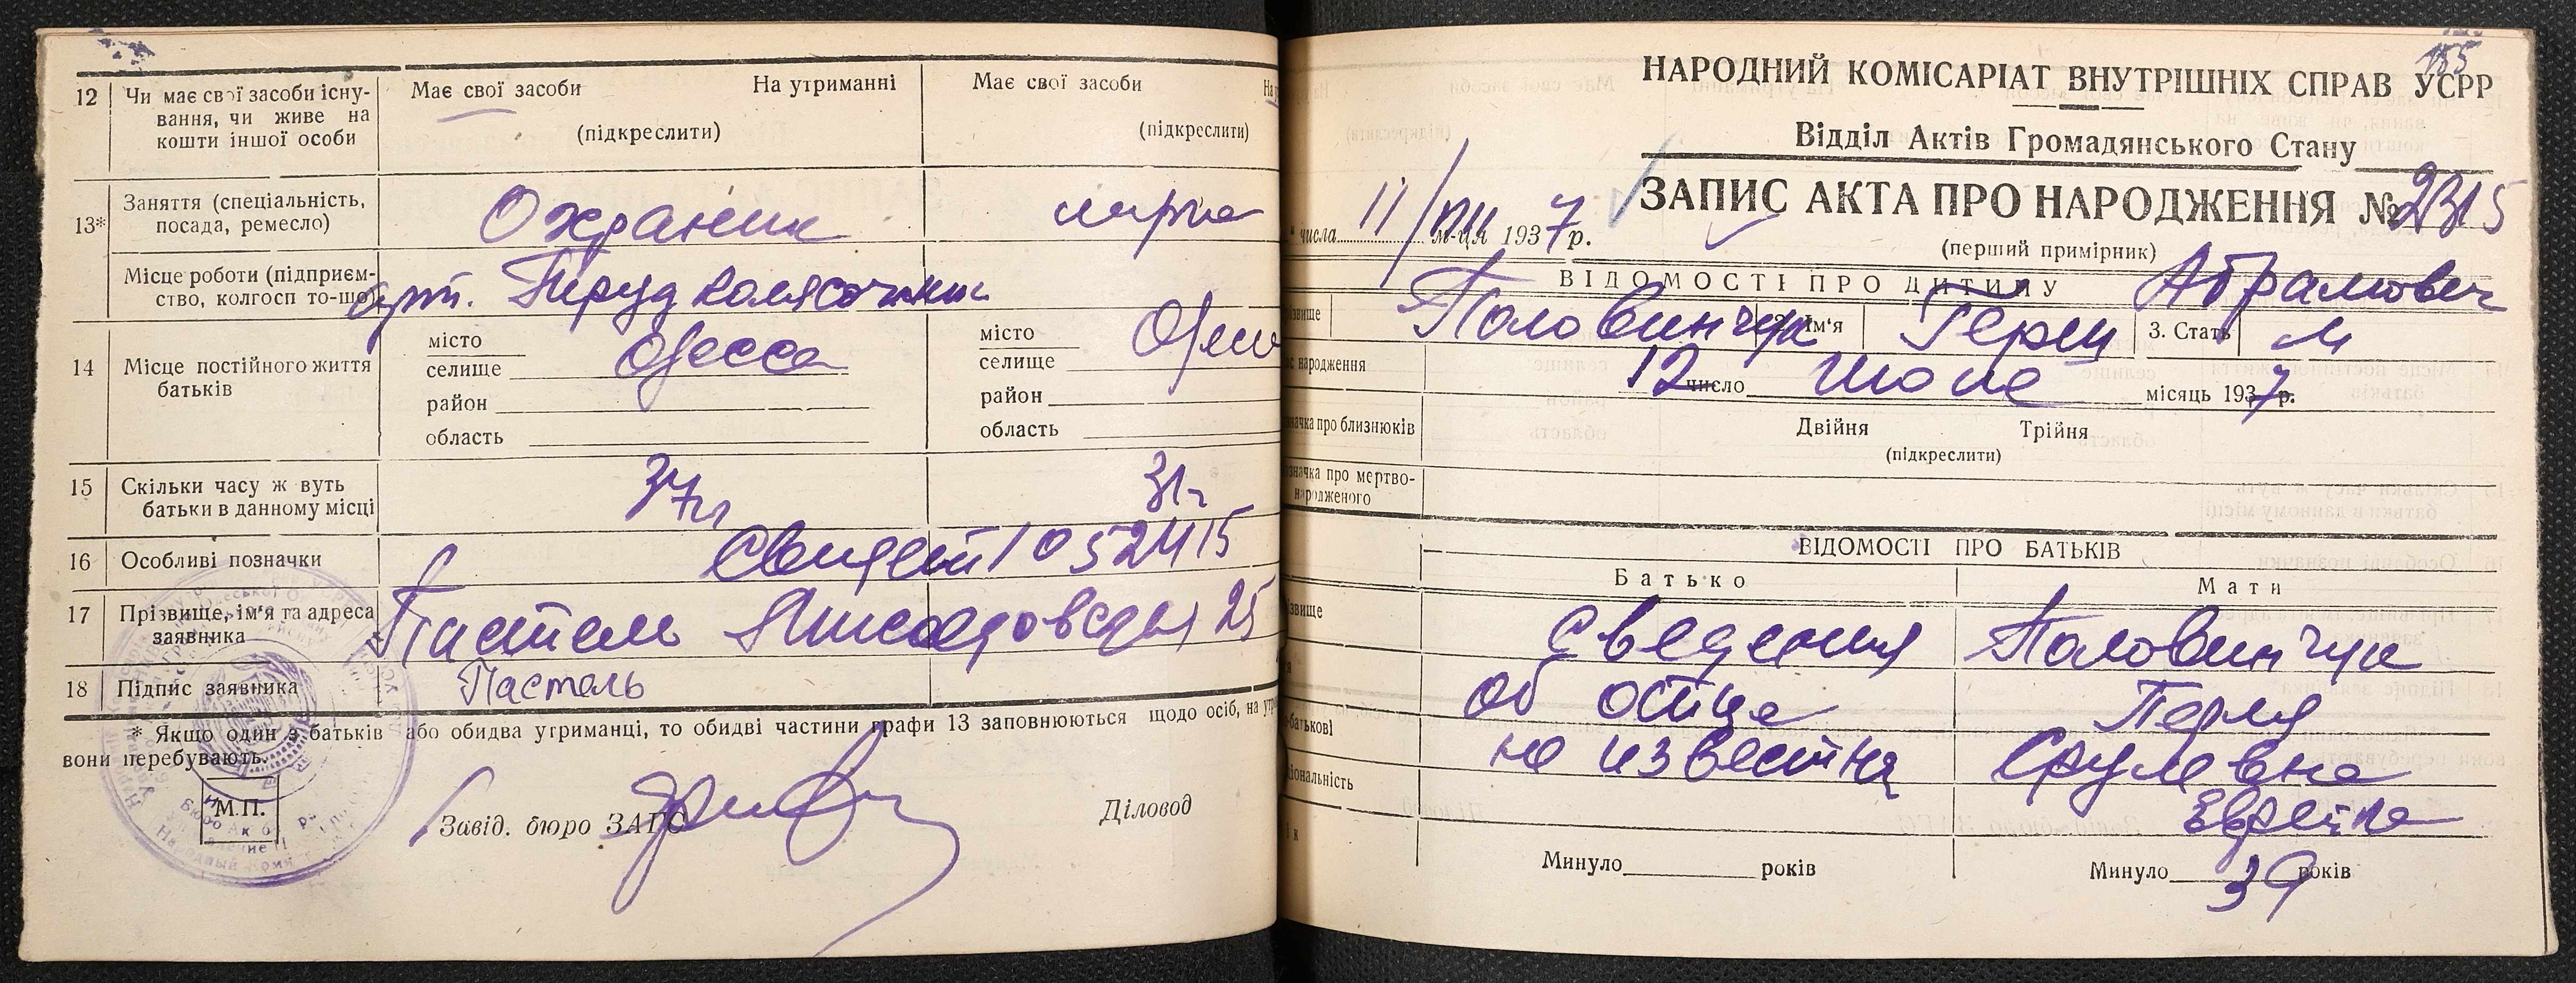 12 Чи має свої засоби існування, чи живе на кошти іншої особи
Має свої засоби На утриманні
(підкреслити)
Має свої засоби На
(підкреслити)
13* Заняття (спеціальність, посада, ремесло)
Охраник
Місце роботи (підприємство, колгосп то-що)
арт. Труд
14 Місце постійного життя батьків
місто
селище Одесса
район
область
місто
селище Одесс
район
область
15 Скільки часу ж вуть батьки в данному місці
37 г
31 г
16 Особливі позначки
Свидет 1052415
17 Прізвище, ім‘я та адреса заявника
Пастель 25
18 Підпис заявника
Пастель
* Якщо один з батьків або обидва утриманці, то обидві частини графи 13 заповнюються щодо осіб, на
вони перебувають.
М.П.
Завід. бюро ЗАГС
Діловод
155
НАРОДНИЙ КОМІСАРІАТ ВНУТРІШНІХ СПРАВ УСРР
Відділ Актів Громадянського Стану
ЗАПИС АКТА ПРО НАРОДЖЕННЯ № 2315
числа 11/VIII м-ця 1937 р.
(перший примірник)
ВІДОМОСТІ ПРО ДИТИНУ
Абрамович
Половинчук Ім‘я Герш 3. Стать М
народження
12 число Июле місяць 1937 р.
про близнюків
Двійня Трійня
(підкреслити)
про мертво-
народженого
ВІДОМОСТІ ПРО БАТЬКІВ
Батько Мати
Сведения Половинчук
об отце Перля
не известны Срулевна
Еврейка
Минуло років
Минуло 39 років